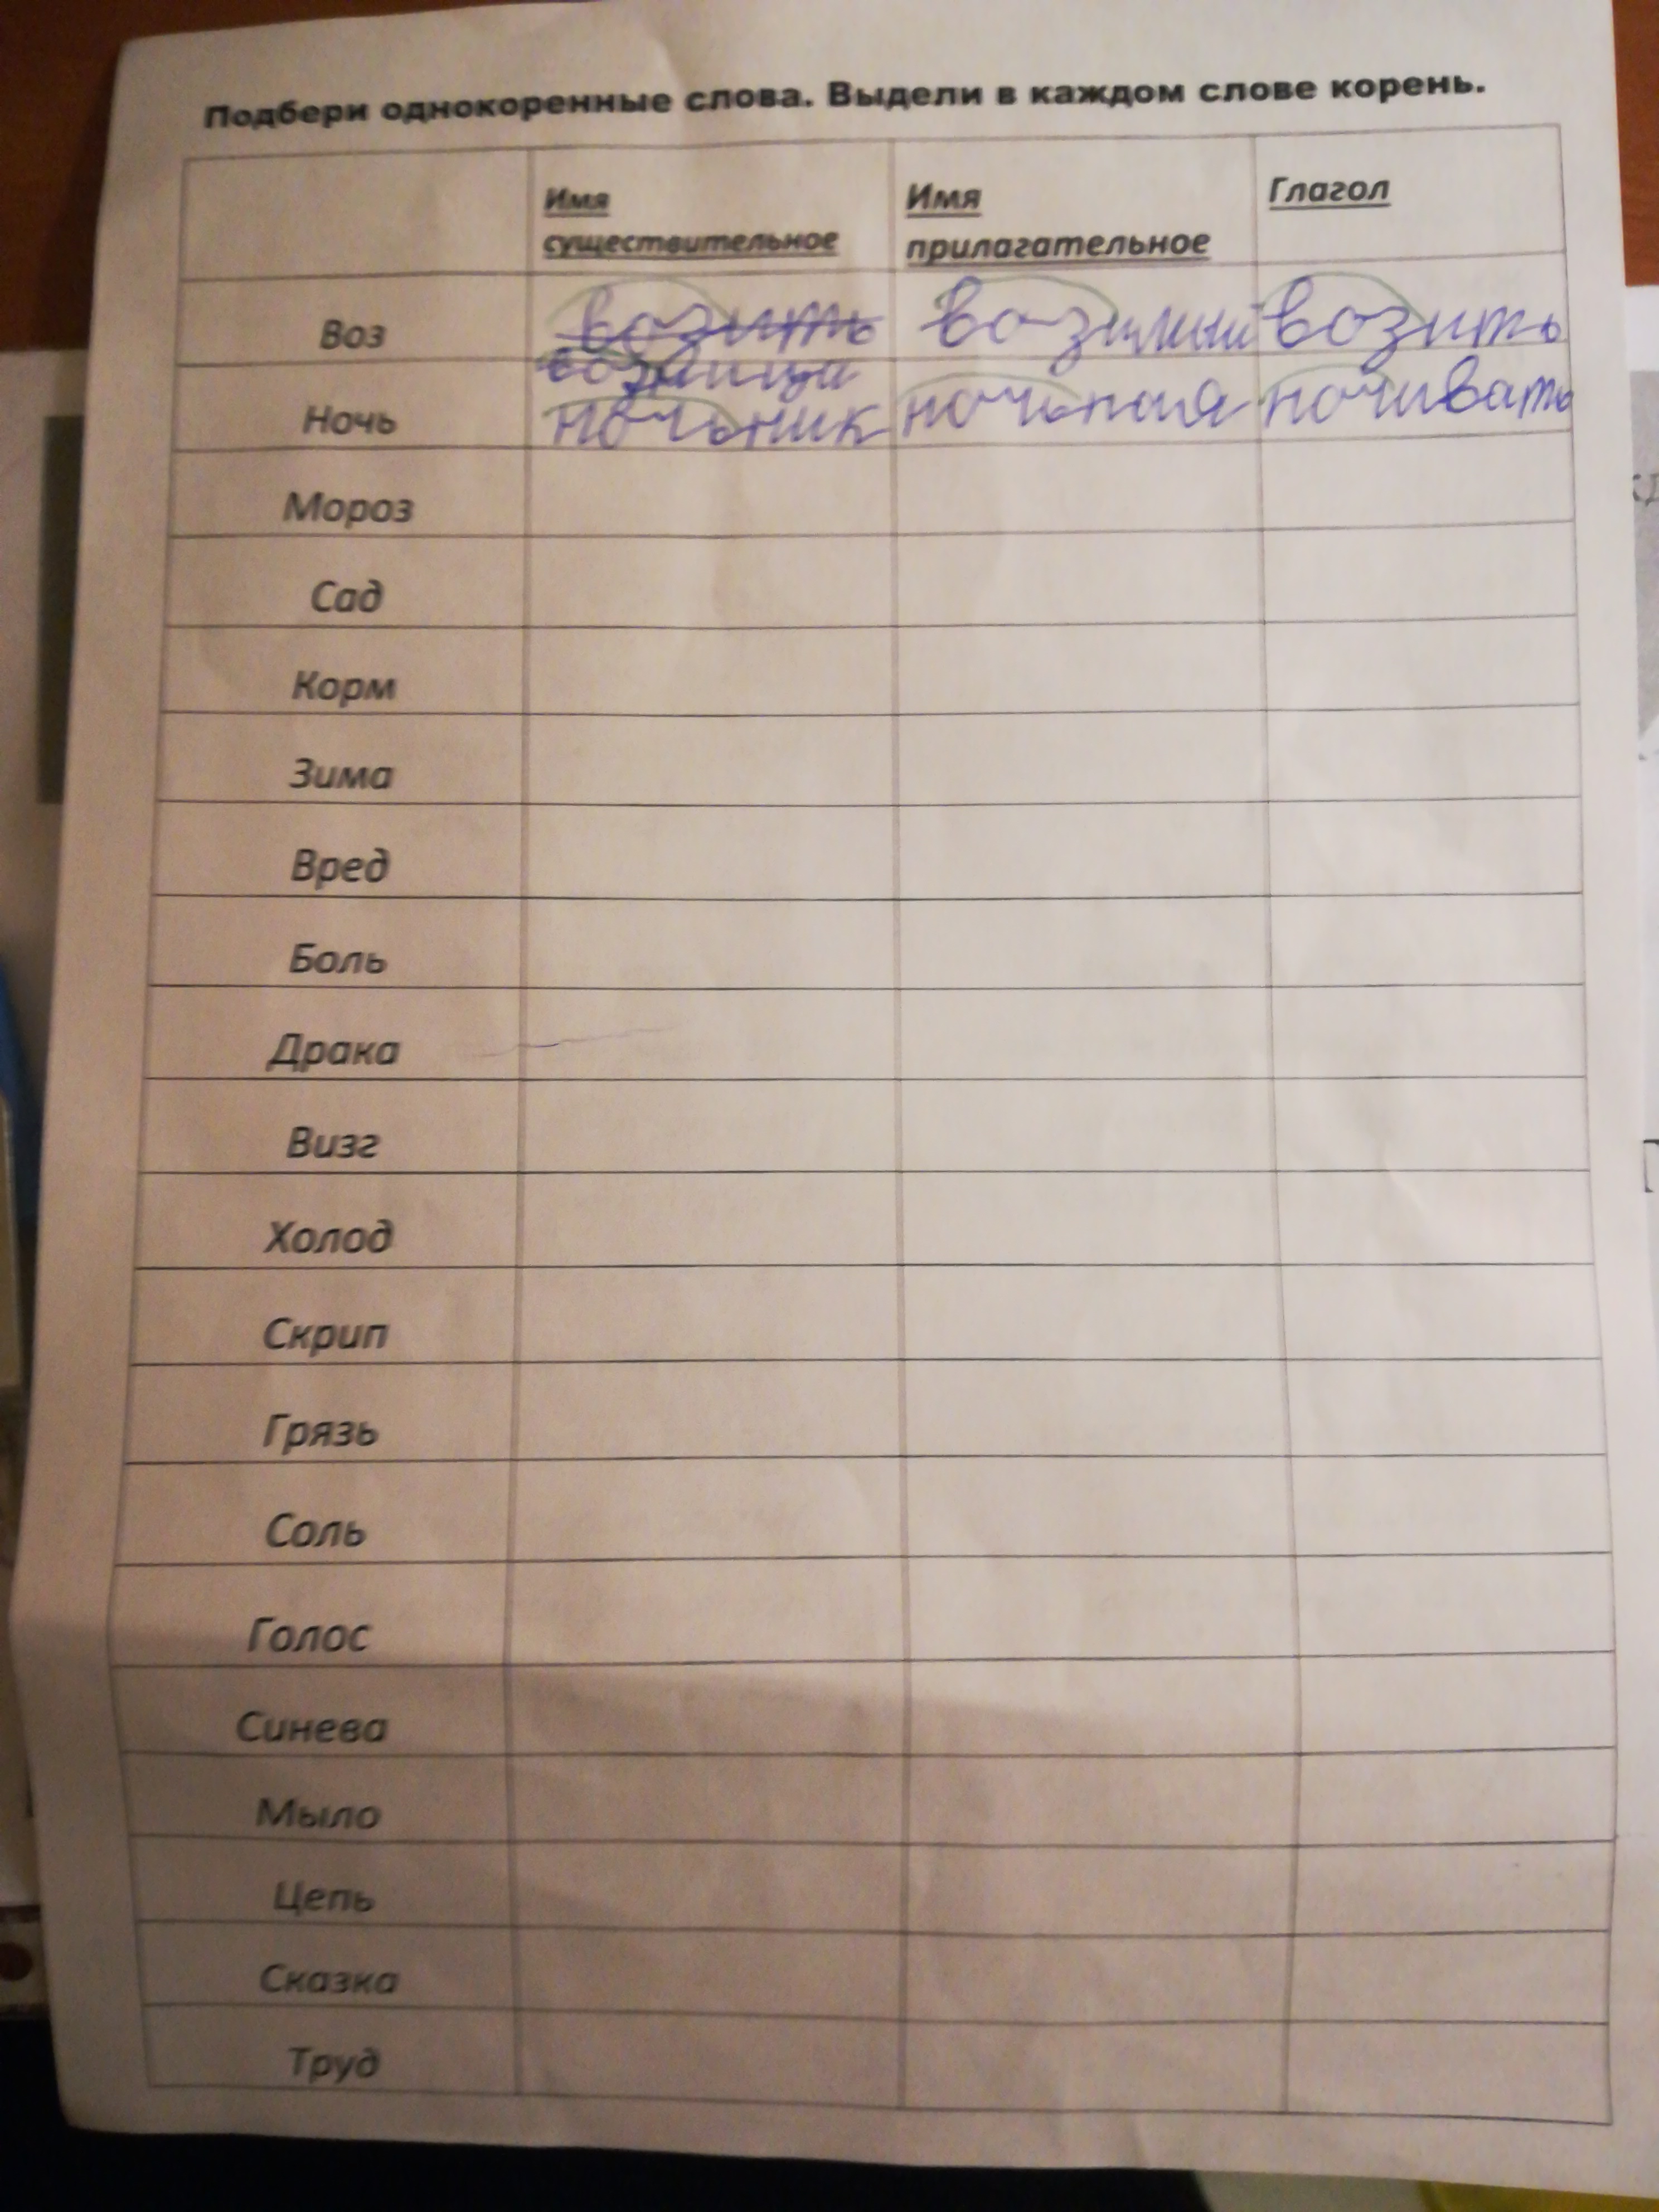 Подбери однокоренные слова. Выдели в каждом слове корень.
Имя существительное Имя прилагательное Глагол
Воз возить возимый возить
возница
Ночь ночьник ночьная ночивать
Мороз
Сад
Корм
Зима
Вред
Боль
Драка
Визг
Холод
Скрип
Грязь
Соль
Голос
Синева
Мыло
Цепь
Сказка
Труд